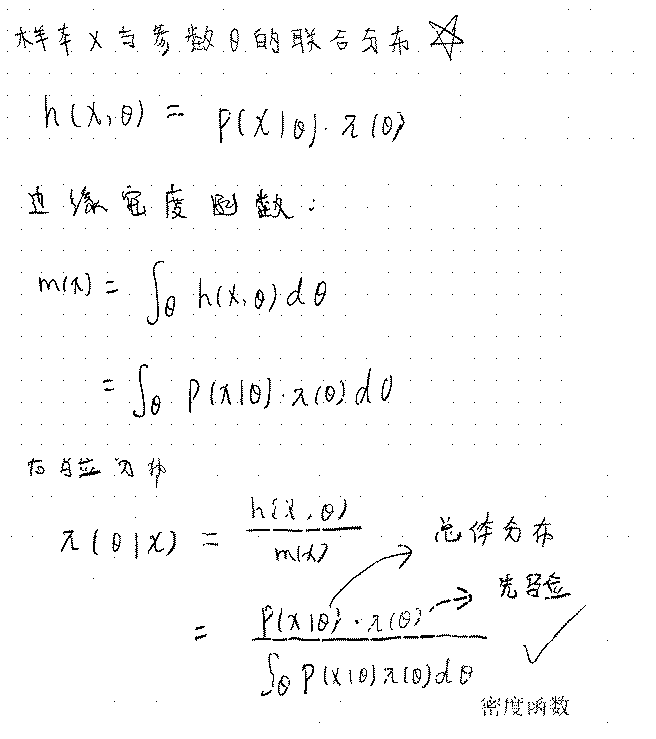 样本 x 与参数 θ 的联合分布 ☆
h(x,θ) = p(x|θ)·π(θ)
边缘密度函数:
m(x) = ∫_θ h(x,θ) dθ
= ∫_θ p(x|θ)·π(θ) dθ
后验分布
π(θ|x) = h(x,θ) / m(x)
总体分布
先验
= p(x|θ)·π(θ) / ∫_θ p(x|θ)π(θ)dθ ✓
密度函数